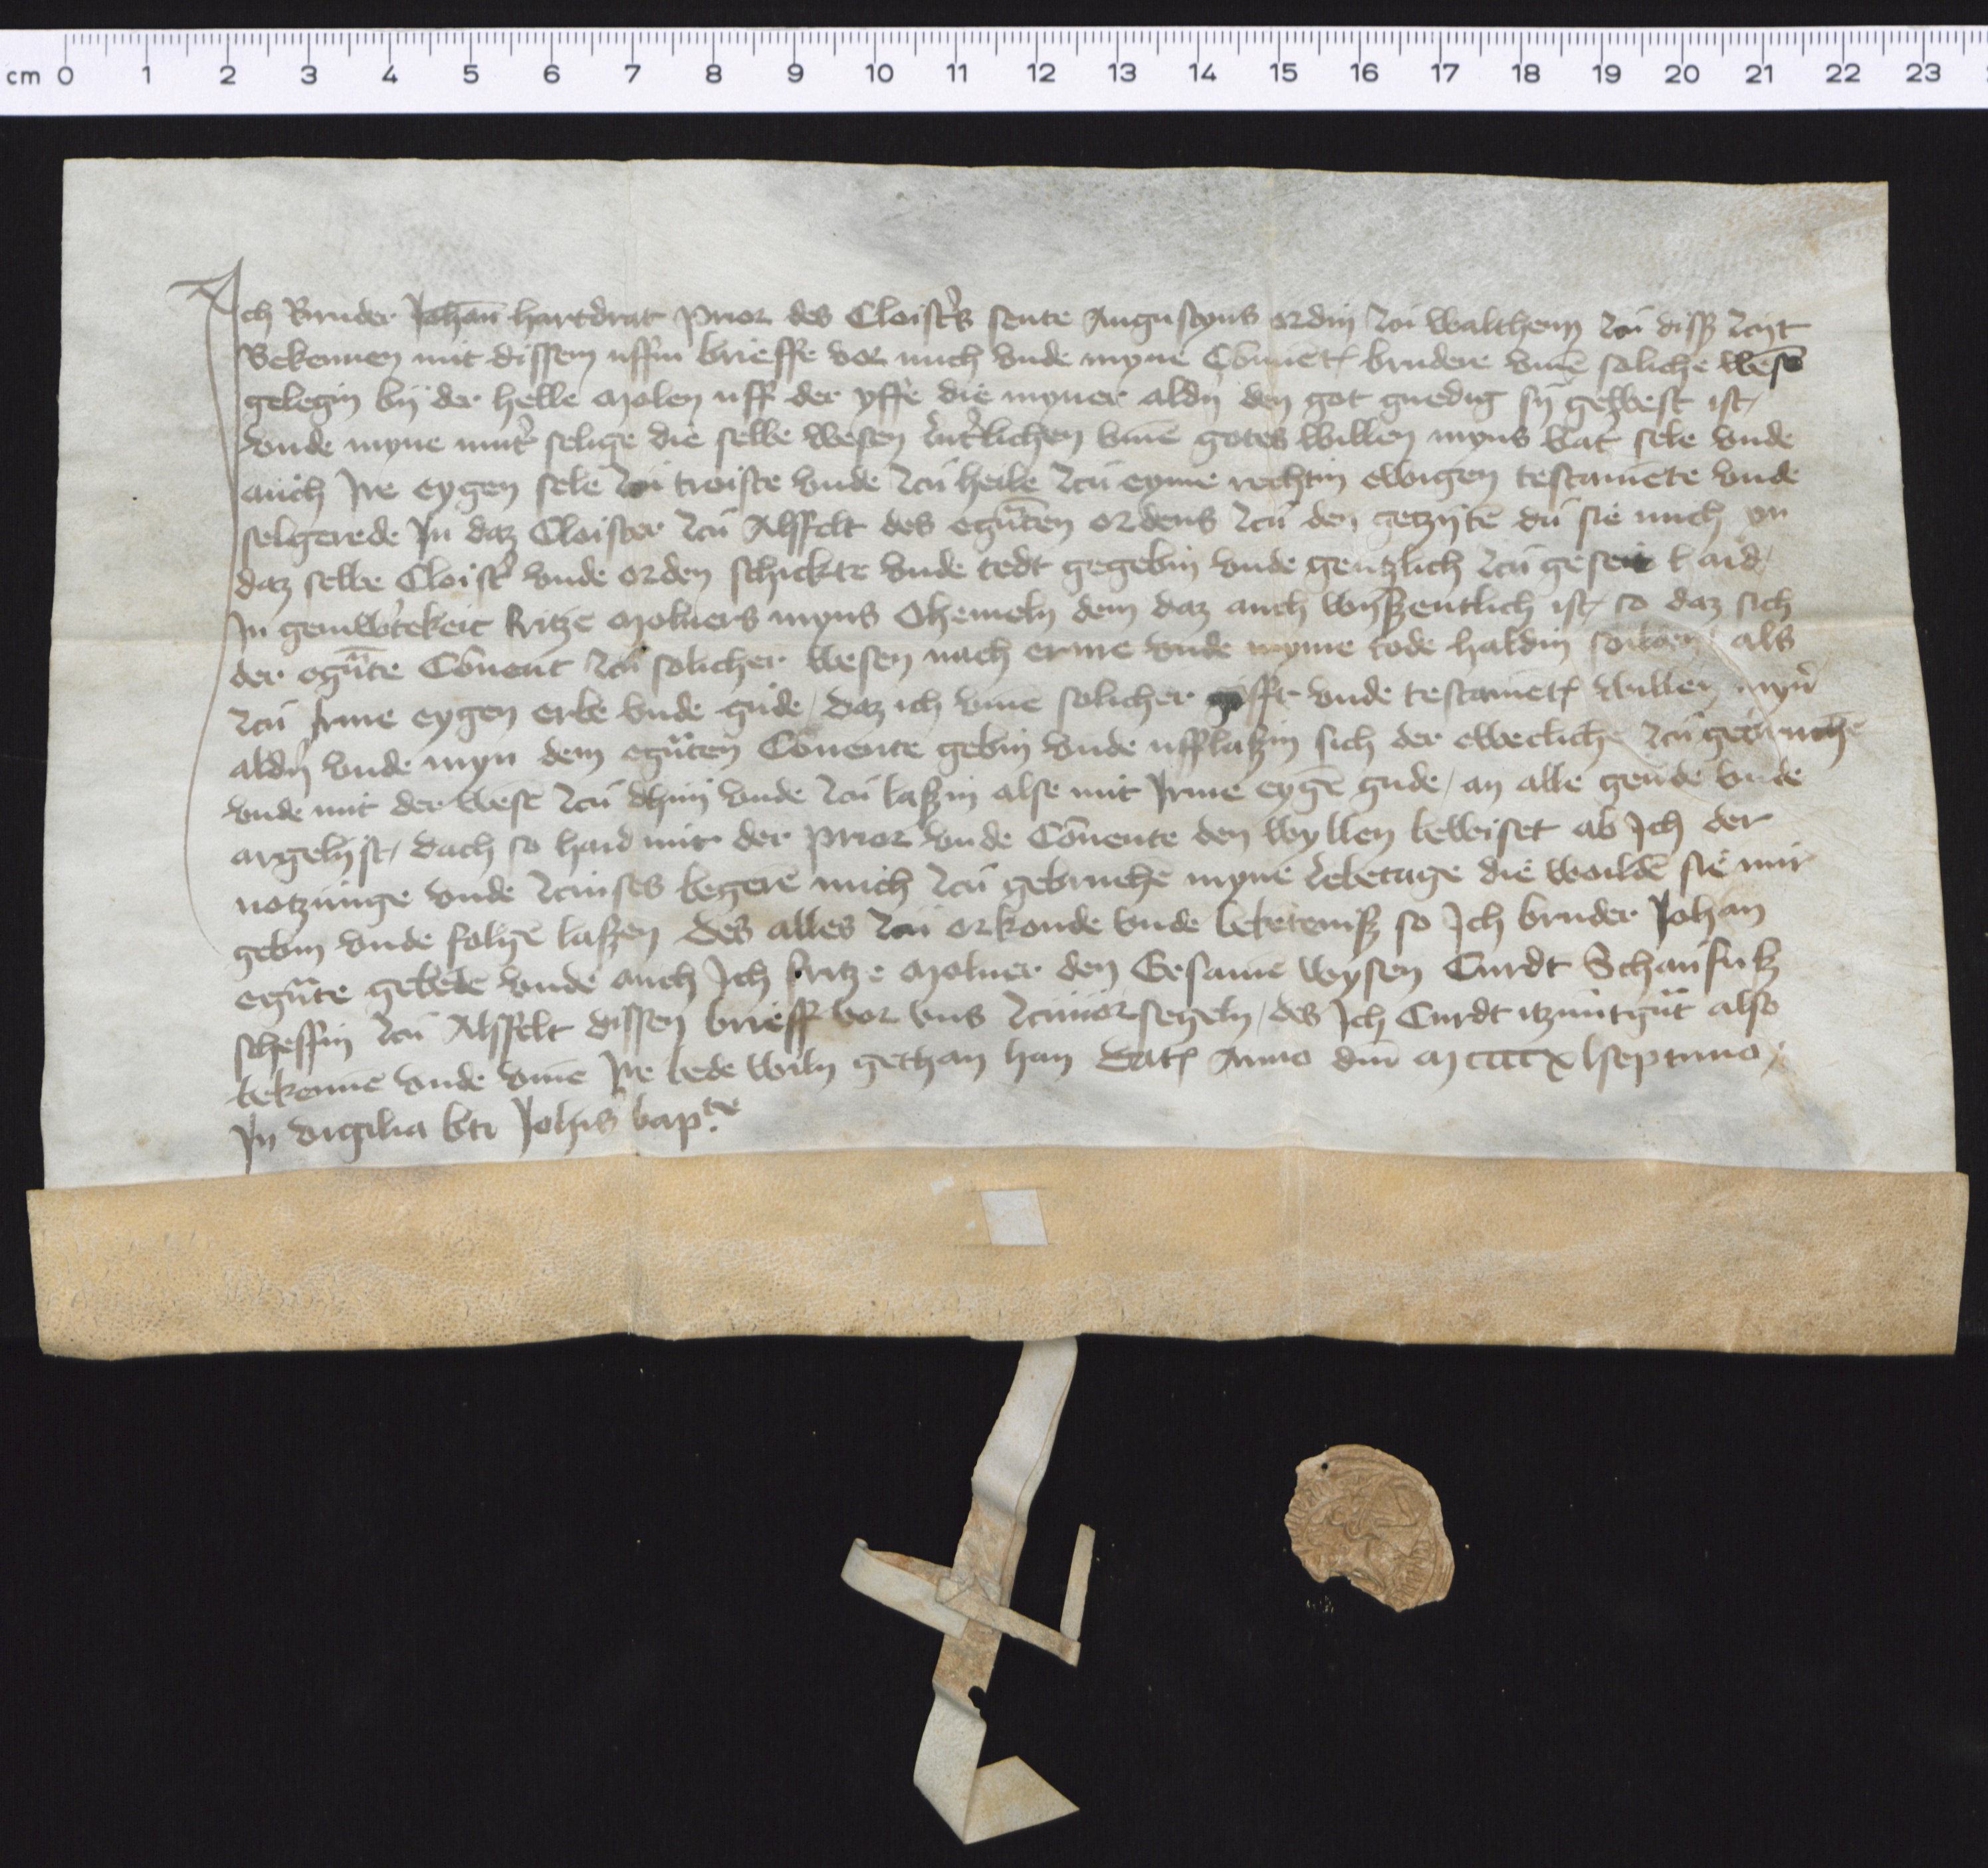 cm 0 1 2 3 4 5 6 7 8 9 10 11 12 13 14 15 16 17 18 19 20 21 22 23
Ich Bruder Johan̄ hartdrat prior des Cloisters sente Augustyns ordin zcu waltheym zcu disß zcijt
Bekennen mit dissem uffin brieffe vor mich vnde myne Cōuent brudere vm̄e soliche wesē
gelegin bij der helle molen uff der yffe die myner aldn̄ den got gnedig sij gewest ist
vnde myne mut̄ selige die selbe wesen lut̄lichen vm̄e gotes willen myns vat̄ sele vnde
auch Jre eygen sele zcu troiste vnde zcu heile zcu eyme rechtin ewigen testamēte vnde
selgerede Jn daz Cloister zcu Alsfelt des egn̄ten ordens zcu den getzijtē du sie mich yn
daz selbe Cloist̄ vnde orden schickte vnde tedt gegebin vnde gentzlich zcu geseit haid
Jn geinw̄tekeit fritze molners myns Ohemeln dem daz auch wyßentlich ist so daz sich
der egn̄te Cōuent zcu solicher wesen nach erme vnde myme tode haldin sollen als
zcu Jrme eygen erbe vnde gude daz ich vm̄e solicher gifft vnde testamēt willen myn̄
aldn̄ vnde myn dem egn̄ten Cōuente gebin vnde ufflaßin sich der ewecliche zcu gebruchē
vnde mit der wesē zcu dhun vnde zcu laßin alse mit Jrme eygē gude an alle geude vnde
argelist dach so haid mir der prior vnde Cōuente den wyllen beweiset ab Jch der
notzunge vnde zcinses begerē mich zcu gebruchē myne lebetage die woildē sie mir
gebin vnde folgē laßen des alles zcu orkonde vnde bekēteniß so Jch bruder Johan
egn̄te gebedē vnde auch Jch fritze molner den Ersamē wysen Curdt Schaufuß
scheffin zcu Alsfelt dissen brieff vor vns zcuuorsegeln des Jch Curdt itzuntgn̄t also
bekennē vnde vm̄e Jre bede wiln gethan han Dat Anno dn̄i m cccc xl septimo
Jn vigilia bti Johis bap.te